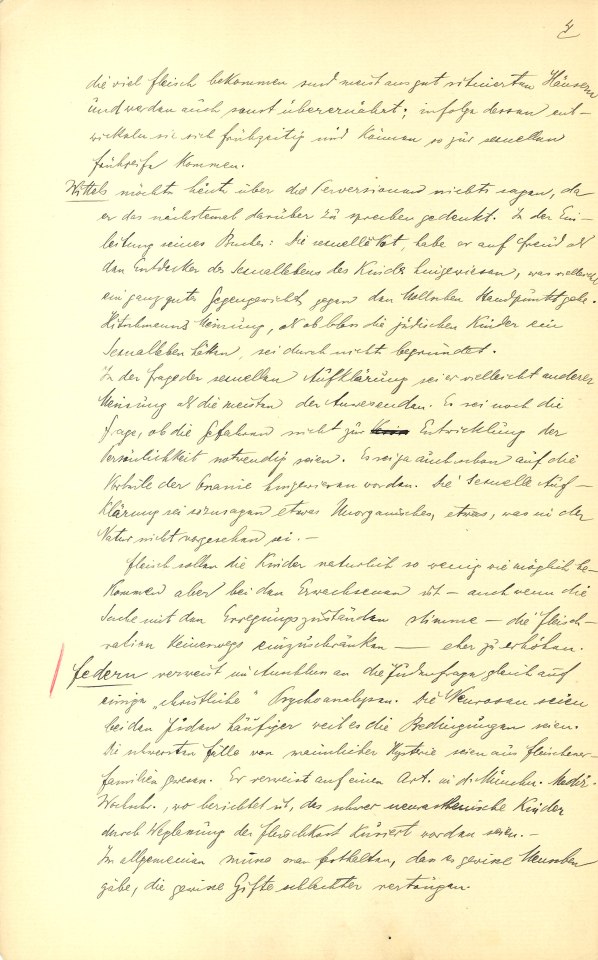 4
die viel Fleisch bekommen sind meist aus gut situierten Häusern
und werden auch sonst überernährt; infolge dessen ent-
wickeln sie sich frühzeitig und können so zur sexuellen
Frühreife kommen.
Wittels möchte heute über die Perversionen nichts sagen, da
er das nächstemal darüber zu sprechen gedenkt. In der Ein-
leitung seines Buches: Die sexuelle Not, habe er auf Freud als
den Entdecker des Sexuallebens des Kindes hingewiesen, was vielleicht
ein ganz gutes Gegengewicht gegen den Mollschen Standpunkt gebe.
Hitschmanns Meinung, als ob blos die jüdischen Kinder ein
Sexualleben hätten, sei durch nichts begründet.
In der Frage der sexuellen Aufklärung sei er vielleicht anderer
Meinung als die meisten der Anwesenden. Es sei noch die
Frage, ob die Gefahren nicht zur Entwicklung der
Persönlichkeit notwendig seien. Es sei ja auch schon auf die
Vorteile der Onanie hingewiesen worden. Die sexuelle Auf-
klärung sei sozusagen etwas Unorganisches, etwas, was in der
Natur nicht vorgesehen sei. —
Fleisch sollen die Kinder natürlich so wenig wie möglich be-
kommen aber bei den Erwachsenen ist — auch wenn die
Sache mit den Erregungszuständen stimme — die Fleisch-
ration keineswegs einzuschränken — eher zu erhöhen.
Federn verweist im Anschluss an die Judenfrage gleich auf
einige „christliche" Psychoanalysen. Die Neurosen seien
bei den Juden häufiger weil es die Bedingungen seien.
Die schwersten Fälle von männlicher Hysterie seien aus Fleischer-
familien gewesen. Er verweist auf einen Art. in d. Münchn. Mediz.
Wochschr., wo berichtet ist, das schwer neurasthenische Kinder
durch Weglassung der Fleischkost kuriert worden seien. —
Im allgemeinen müsse man festhalten, dass es gewisse Menschen
gäbe, die gewisse Gifte schlechter vertrügen.